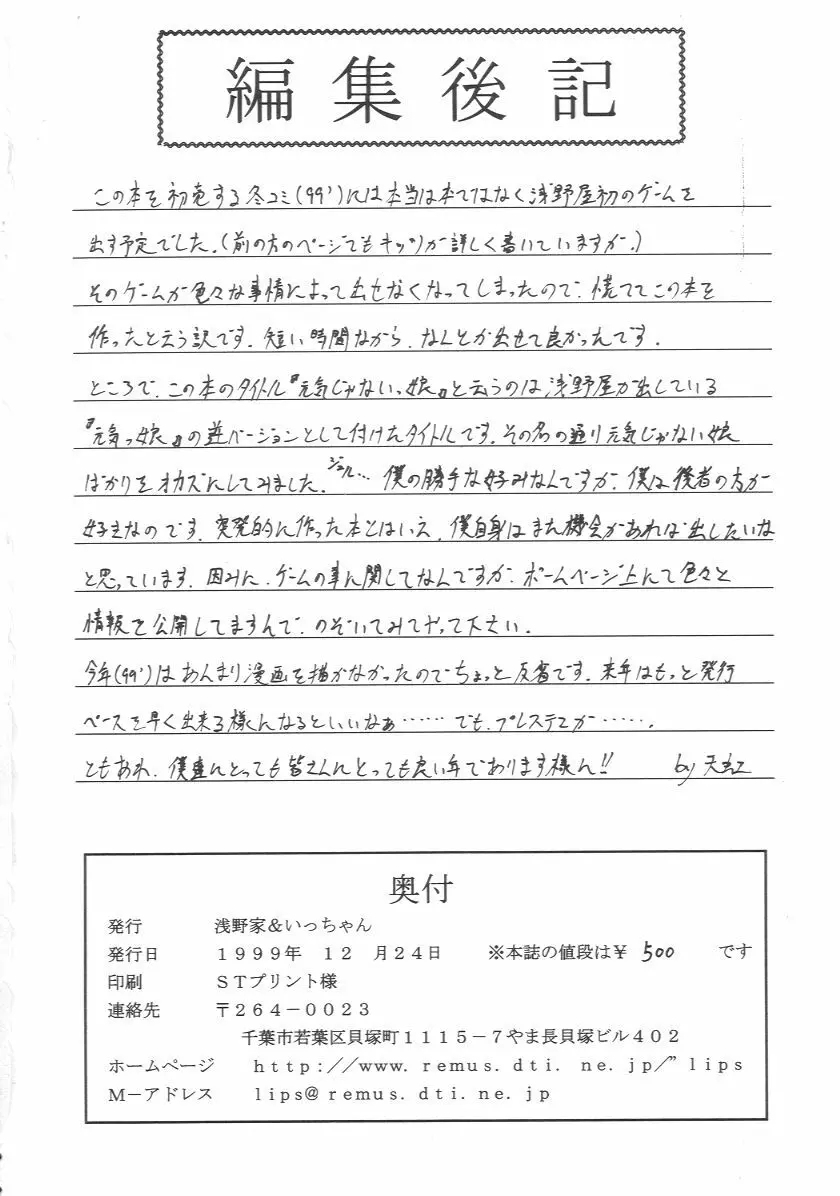 編集後記
この本を初売する冬コミ(99')には本当は本ではなく浅野屋初のゲームを
出す予定でした.(前の方のページでもキップが詳しく書いていますが.)
そのゲームが色々な事情によって出せなくなってしまったので、慌ててこの本を
作ったと云う訳です.短い時間ながら、なんとか出せて良かったです.
ところで、この本のタイトル『元気じゃないっ娘』と云うのは浅野屋が出している
『元気っ娘』の逆バージョンとして付けたタイトルです.その名の通り元気じゃない娘
ばかりをオカズにしてみました. 僕の勝手な好みなんですが、僕は後者の方が
好きなのです.突発的に作った本とはいえ、僕自身はまた機会があれば出したいな
と思っています.因みに、ゲームの事に関してなんですが、ホームページ上にて色々と
情報を公開してますんで、のぞいてみてやって下さい.
今年(99')はあんまり漫画を描かなかったのでちょっと反省です.来年はもっと発行
ペースを早く出来る様になるといいなぁ…… でも、プレステ2が…….
ともあれ、僕達にとっても皆さんにとっても良い年であります様に!! by 天虹
奥付
発行 浅野家&いっちゃん
発行日 1999年 12 月24日 ※本誌の値段は¥ 500 です
印刷 STプリント様
連絡先 〒264-0023
千葉市若葉区貝塚町1115-7やま長貝塚ビル402
ホームページ http://www.remus.dti.ne.jp/”lips
M-アドレス lips@remus.dti.ne.jp